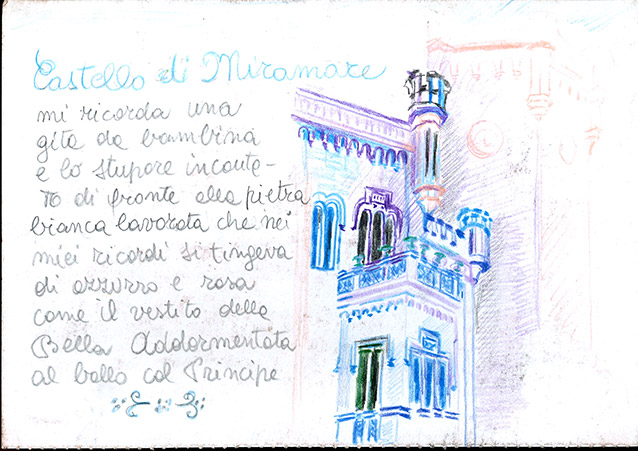 Castello di Miramare
mi ricorda una
gita da bambina
e lo stupore incanta-
to di fronte alla pietra
bianca lavorata che nei
miei ricordi si tingeva
di azzurro e rosa
come il vestito della
Bella Addormentata
al ballo col Principe